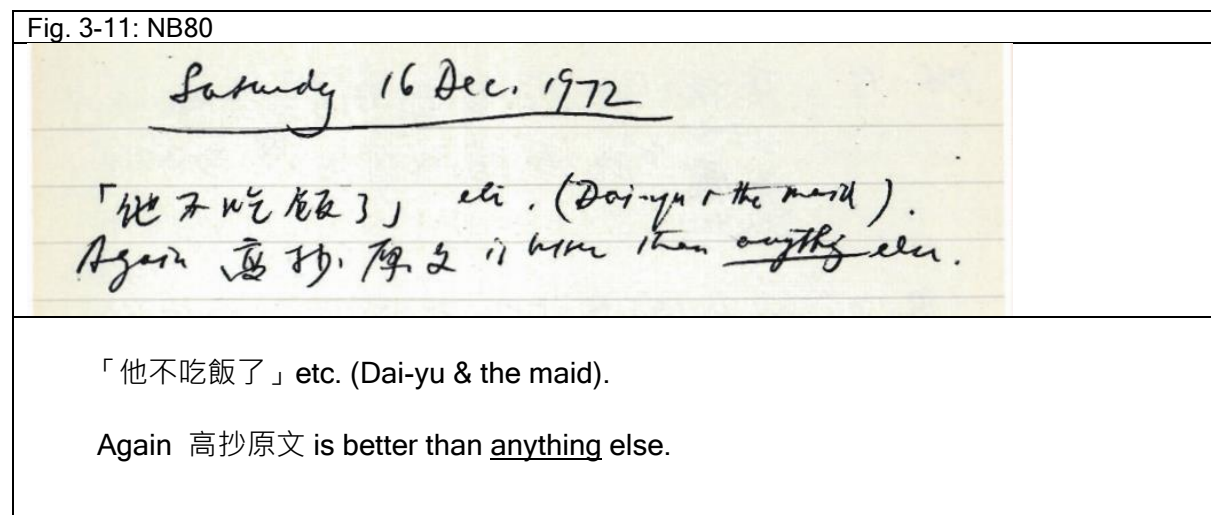 Fig. 3-11: NB80
Saturday 16 Dec. 1972
「他不吃飯了」 etc. (Dai-yu & the maid).
Again 高抄原文 is better than anything else.
「他不吃飯了」etc. (Dai-yu & the maid).
Again 高抄原文 is better than anything else.